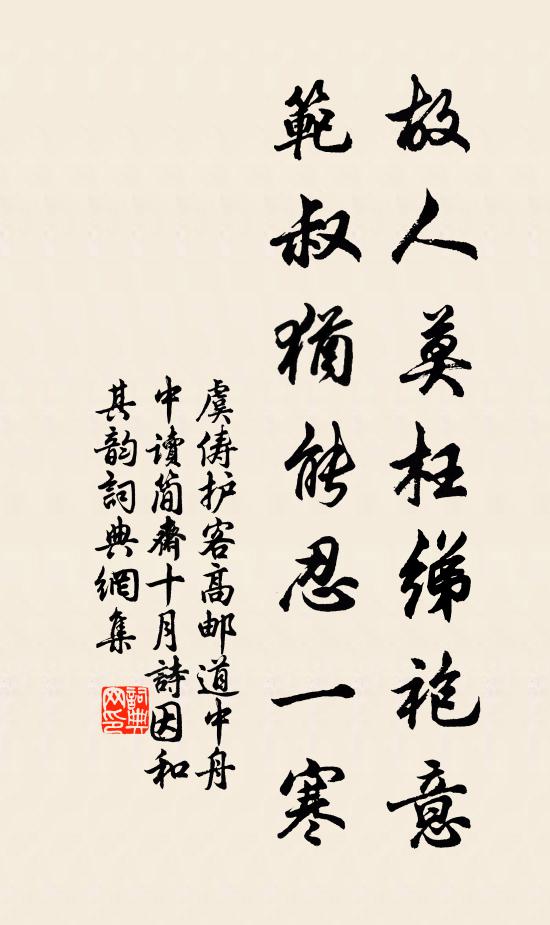 故人莫枉绨袍意
範叔猶能忍一寒
虞俦护客高邮道中舟
中读简斋十月詩因和
其韵詞典網集
詞典网印